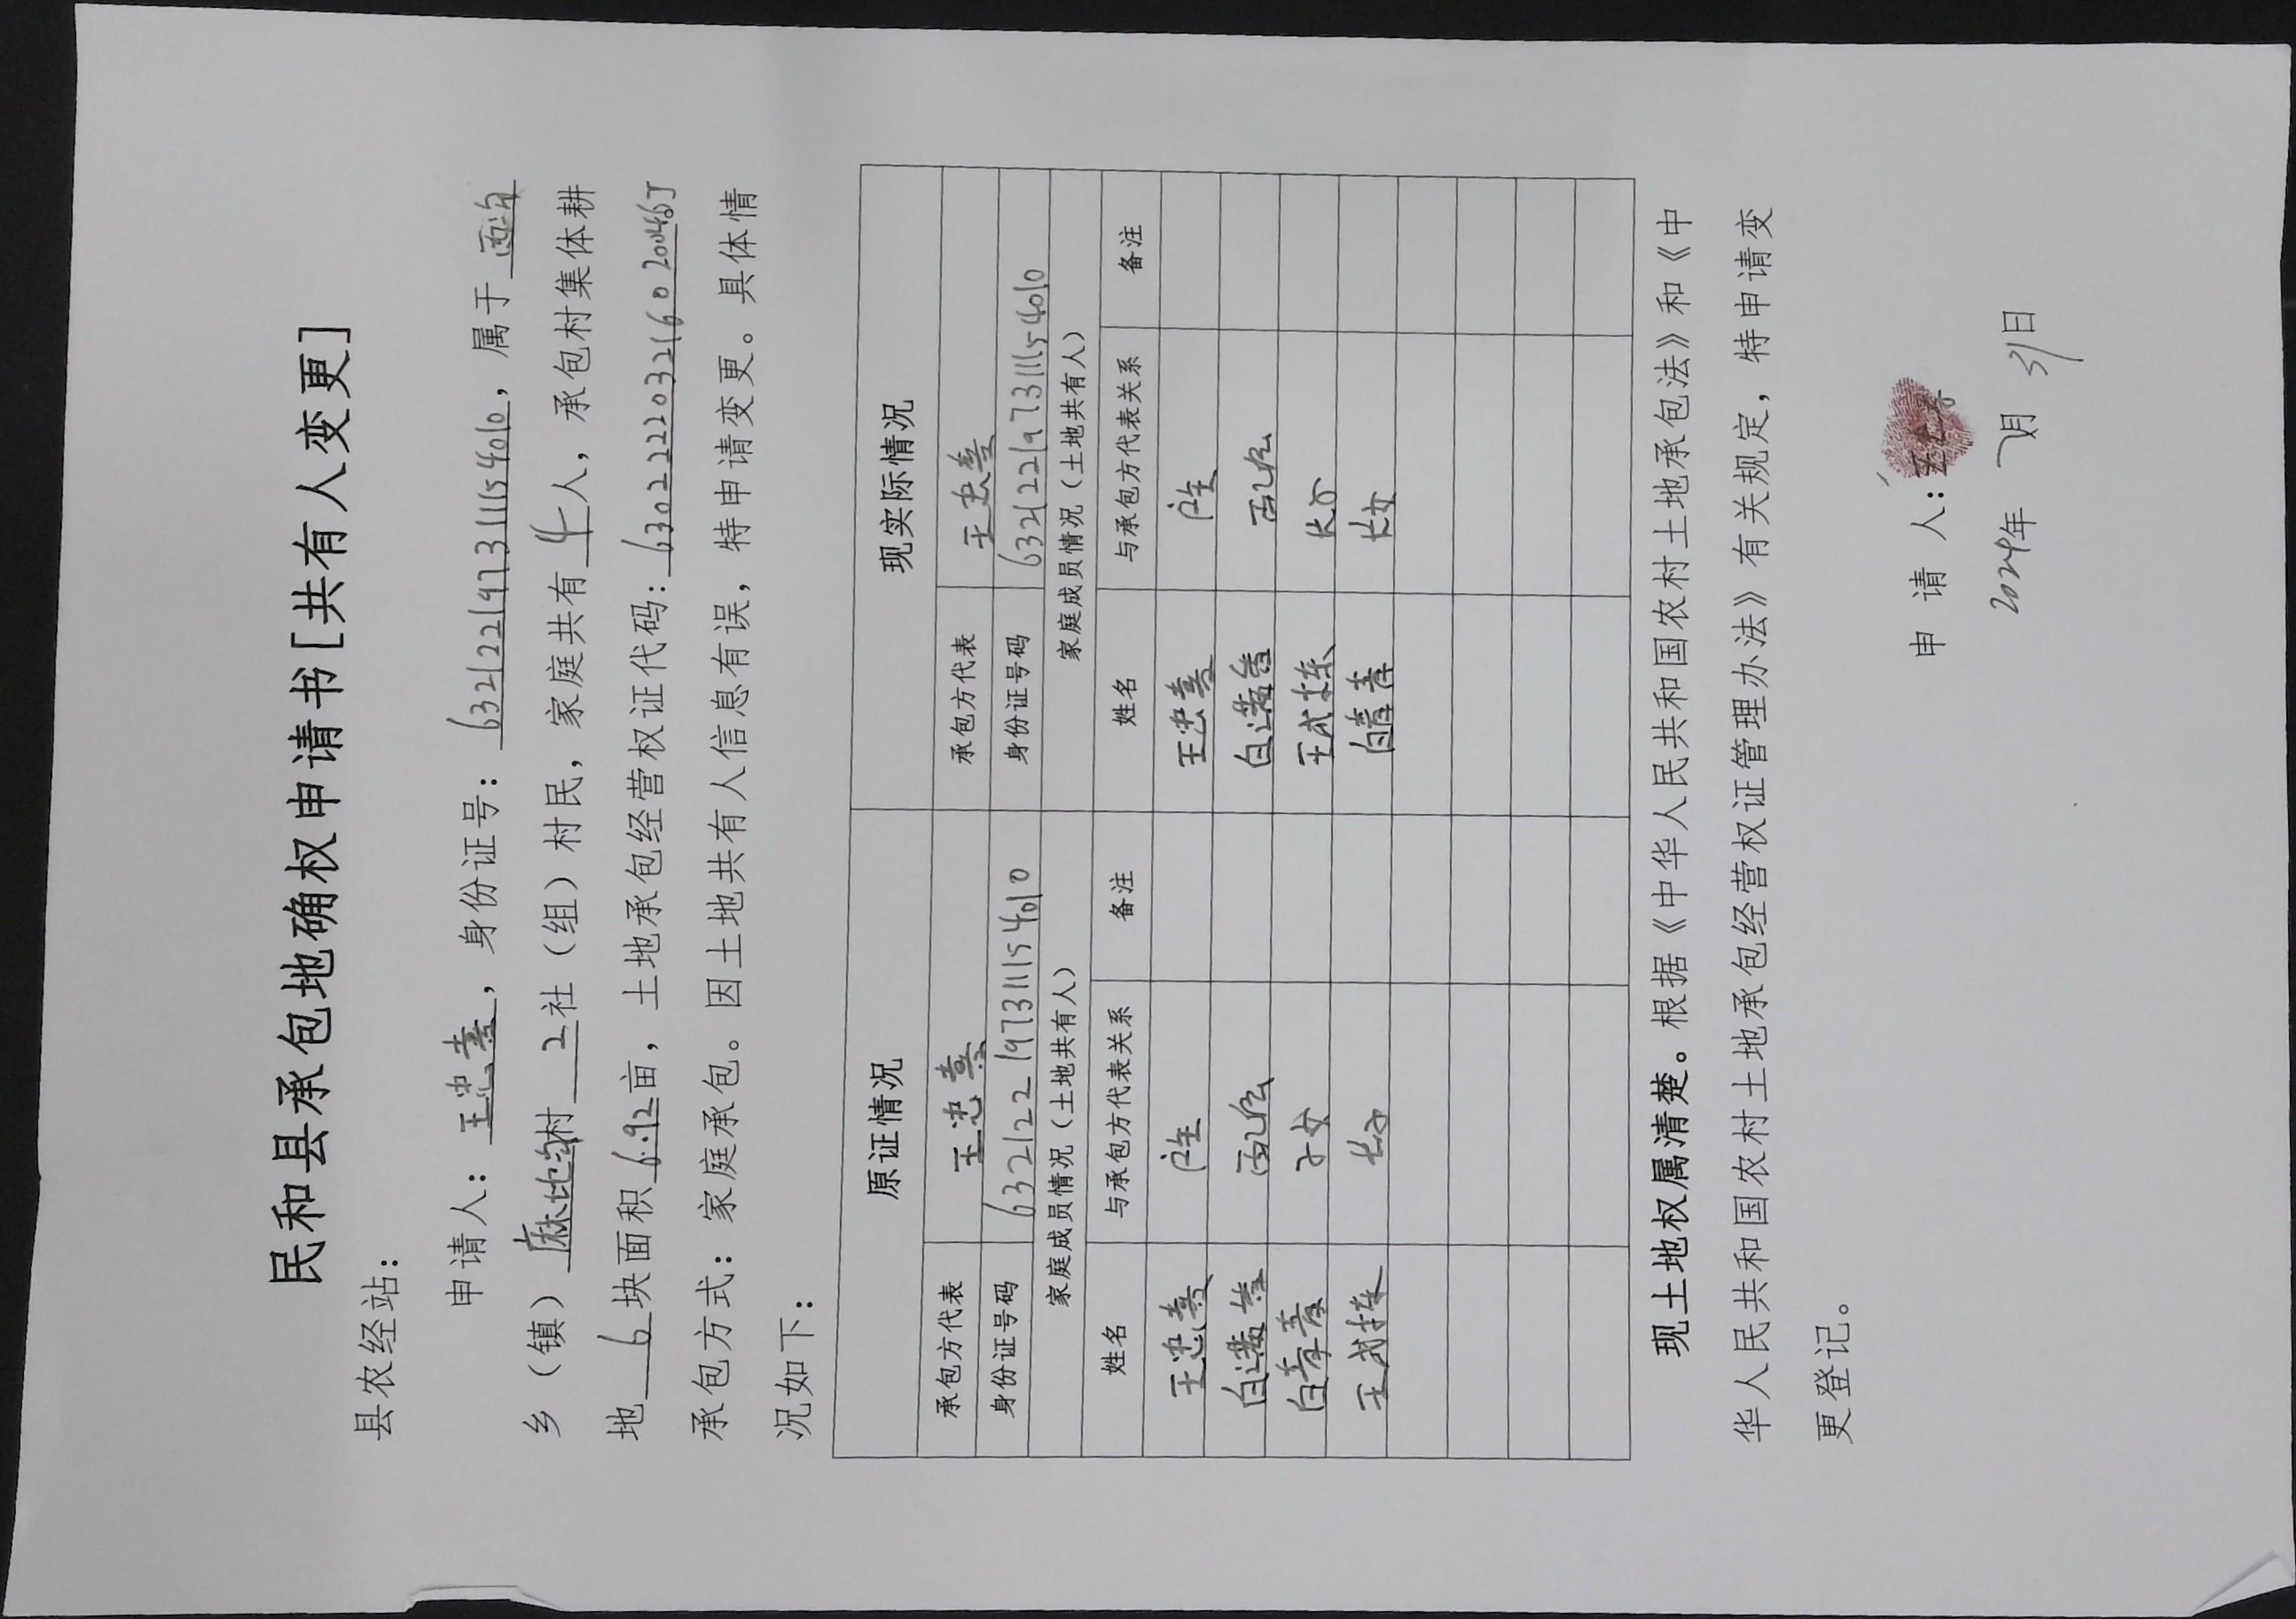 民和县承包地确权申请书[共有人变更]
县农经站：
申请人：王忠喜，身份证号：632122197311154010，属于西沟
乡（镇）麻地沟村 2社（组）村民，家庭共有4人，承包村集体耕
地 6块面积6.92亩，土地承包经营权证代码：630222203216020046J
承包方式：家庭承包。因土地共有人信息有误，特申请变更。具体情
况如下：
原证情况 现实际情况
承包方代表 王忠喜 承包方代表 王忠喜
身份证号码 632122197311154010 身份证号码 632122197311154010
家庭成员情况（土地共有人） 家庭成员情况（土地共有人）
姓名 与承包方代表关系 备注 姓名 与承包方代表关系 备注
王忠喜 户主 王忠喜 户主
白满 配偶 白满 配偶
白青青 子女 王成栋 长子
王成栋 长子 白青青 长女
现土地权属清楚。根据《中华人民共和国农村土地承包法》和《中
华人民共和国农村土地承包经营权证管理办法》有关规定，特申请变
更登记。
申 请 人：王忠喜
2024年 7月 31日